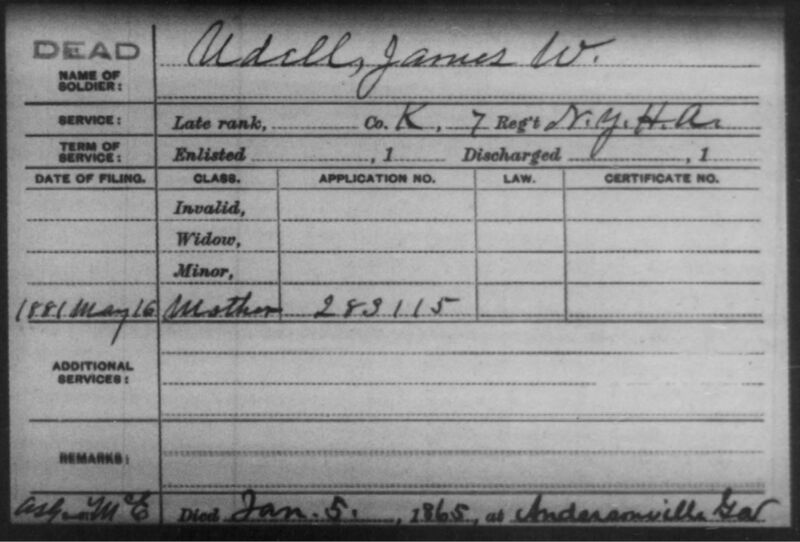 DEAD
Udell, James W.
NAME OF
SOLDIER:
SERVICE: Late rank, Co. K, 7 Reg't N.Y.H.A.
TERM OF
SERVICE: Enlisted , 1 Discharged , 1
DATE OF FILING. CLASS. APPLICATION NO. LAW. CERTIFICATE NO.
Invalid,
Widow,
Minor,
1881 May 16 Mother 283115
ADDITIONAL
SERVICES:
REMARKS:
Died Jan. 5., 1865, at Andersonville Ga